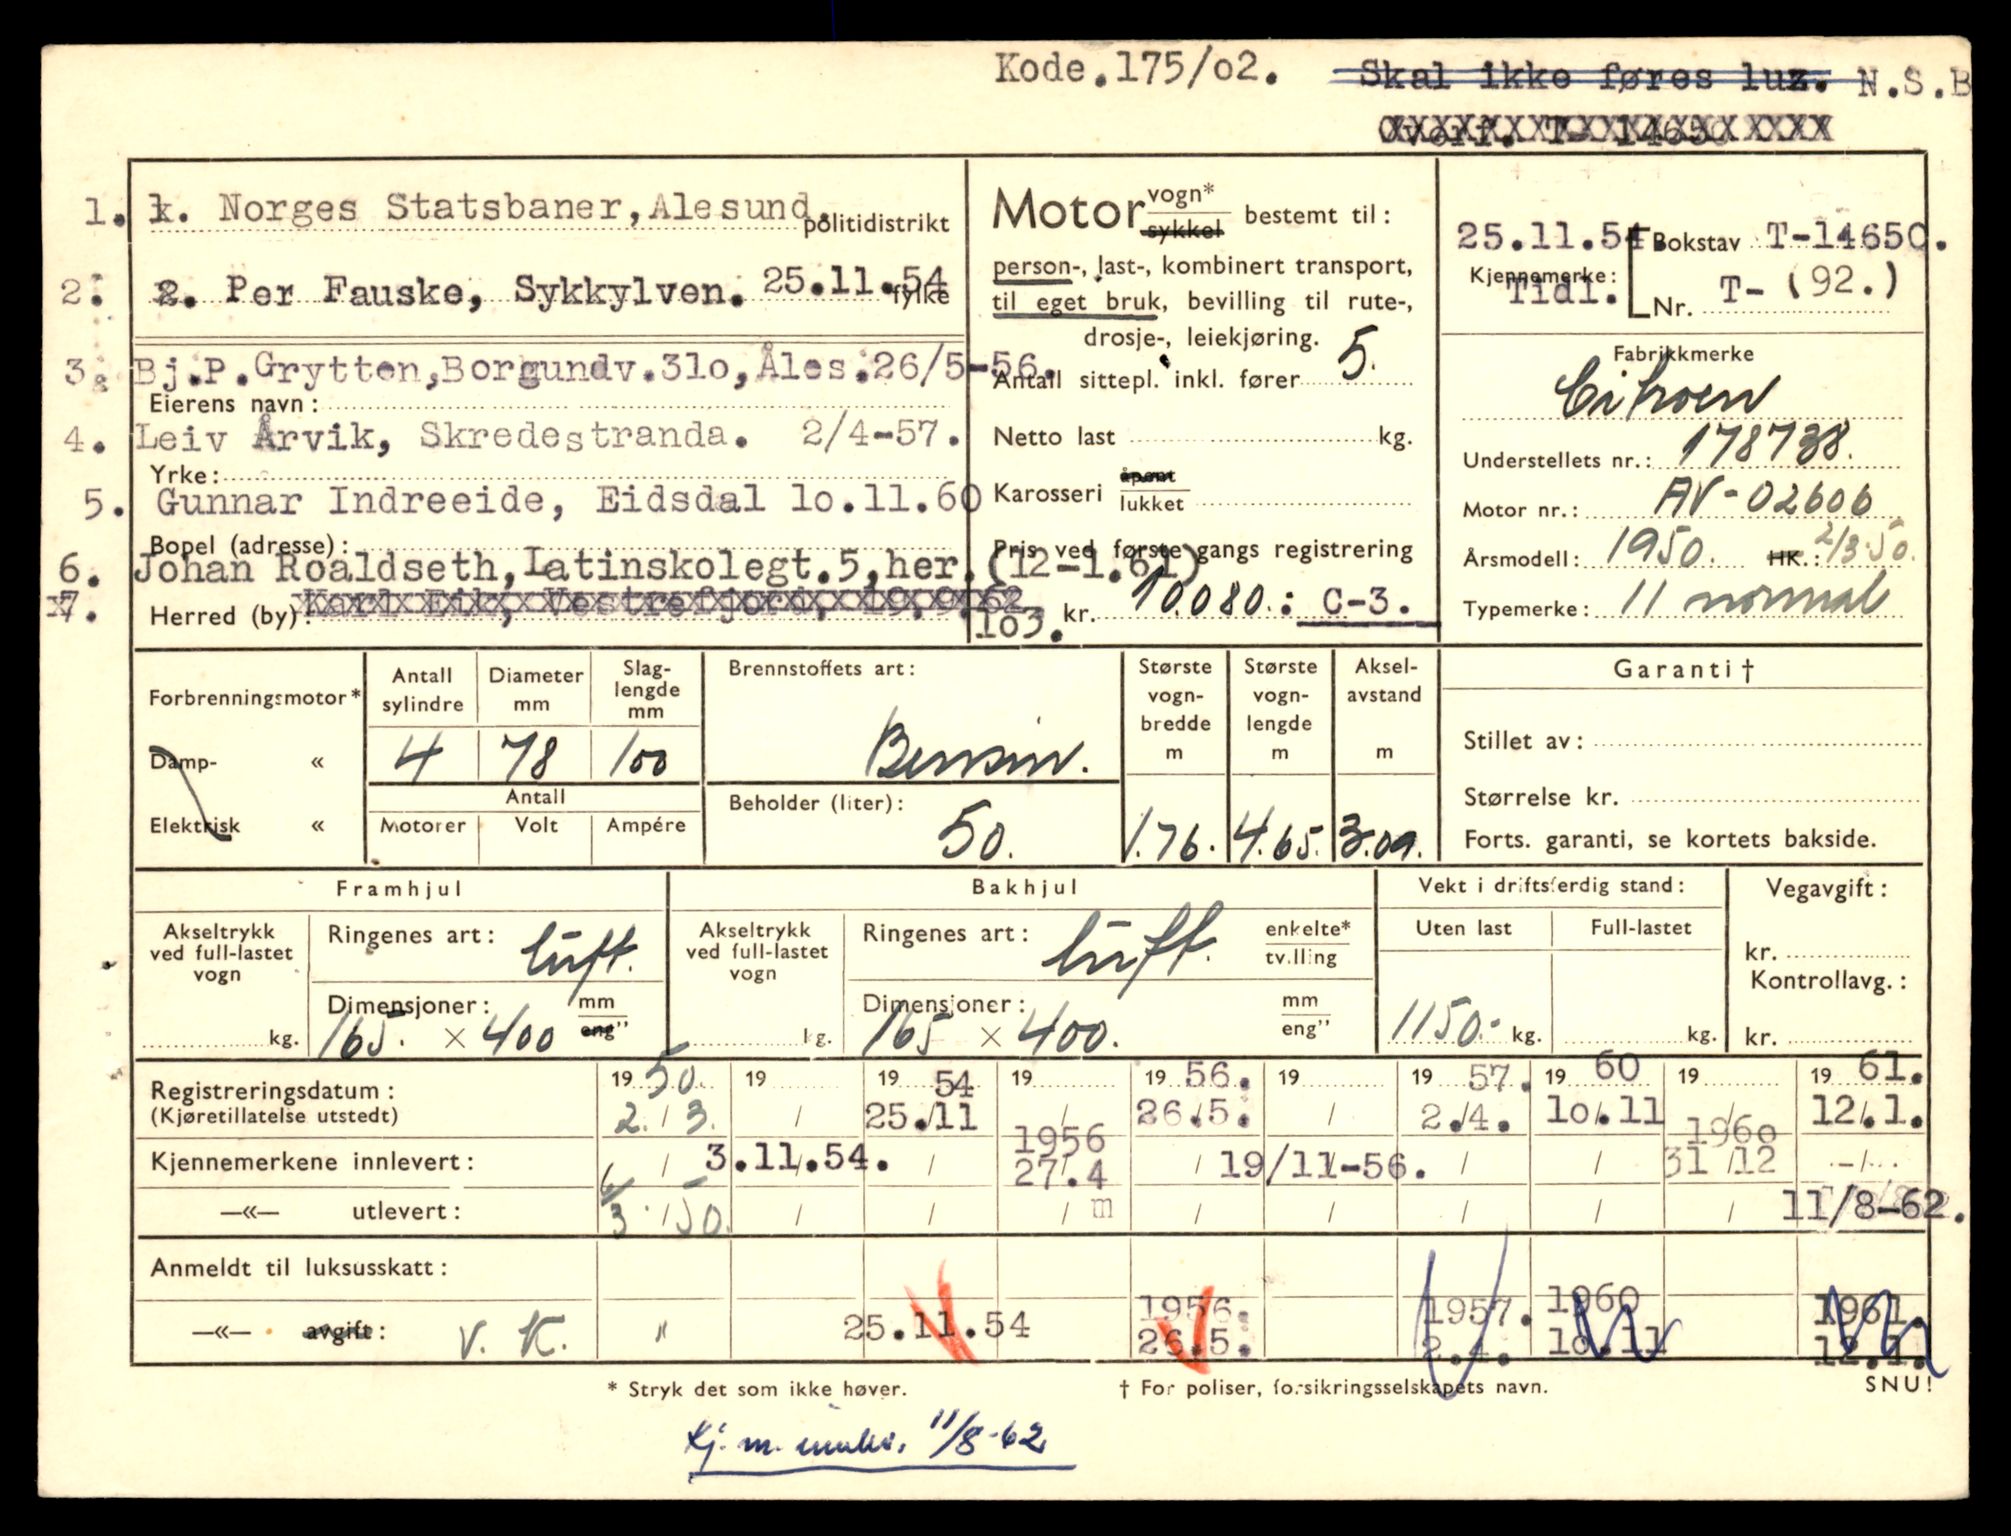 Kode.175/o2. Skal ikke føres luz. N.S.B
Overf. T- 14650
1. k. Norges Statsbaner, Alesund. politidistrikt
2. 2. Per Fauske, Sykkylven. 25.11.54 fylke
3. Bj.P.Grytten,Borgundv.31o,Åles.26/5-56.
Eierens navn:
4. Leiv Årvik, Skredestranda. 2/4-57.
Yrke:
5. Gunnar Indreeide, Eidsdal 1o.11.60
Bopel (adresse):
6. Johan Roaldseth, Latinskolegt.5,her.(12-1.61)
7. Karl Eik, Vestrefjord, 19.9.62
Herred (by):
1o3.
Motor vogn* sykkel bestemt til:
person-, last-, kombinert transport,
til eget bruk, bevilling til rute-,
drosje-, leiekjøring.
Antall sittepl. inkl. fører 5.
Netto last kg.
Karosseri åpent lukket
Pris ved første gangs registrering
kr. 10.080.: C-3.
25.11.54 Bokstav T-14650.
Kjennemerke:
Tidl. Nr. T- (92.)
Fabrikkmerke
Citroen
Understellets nr.: 178738.
Motor nr.: AV-02606
Årsmodell: 1950. HK.: 2/3.50.
Typemerke: 11 normal
Forbrenningsmotor*
Damp- «
Elektrisk «
Antall sylindre
4
Diameter mm
78
Slag-lengde mm
100
Antall
Motorer Volt Ampére
Brennstoffets art:
Bensin.
Beholder (liter):
50.
Største vogn-bredde m
1.76.
Største vogn-lengde m
4.65.
Aksel-avstand m
3.09.
Garanti†
Stillet av:
Størrelse kr.
Forts. garanti, se kortets bakside.
Framhjul
Akseltrykk ved full-lastet vogn
kg.
Ringenes art: luft.
Dimensjoner: mm eng”
165. × 400
Bakhjul
Akseltrykk ved full-lastet vogn
kg.
Ringenes art: luft. enkelte* tvilling
Dimensjoner: mm eng”
165 × 400.
Vekt i driftsferdig stand:
Uten last Full-lastet
1150.- kg. kg.
Vegavgift:
kr.
Kontrollavg.:
kr.
Registreringsdatum: 19 50. 19 19 54 19 19 56. 19 19 57. 19 60 19 19 61.
(Kjøretillatelse utstedt) 2. / 3. / 25./11 / 26.5. / 2./4. 1o.11 / 12.1.
1956 1960
Kjennemerkene innlevert: / 3.11.54. / 27.4 / 19/11-56. / / 31/12 -/-
—«— utlevert: 6/3./50. / / / m / / / / / 11/8-62.
Anmeldt til luksusskatt:
1956. 1957. 1960 1961.
—«— avgift: V. K. " 25.11.54 26.5. 2.4. 10.11 12.1.
* Stryk det som ikke høver. † For poliser, forsikringsselskapets navn. SNU!
Kj.m. 11/8-62